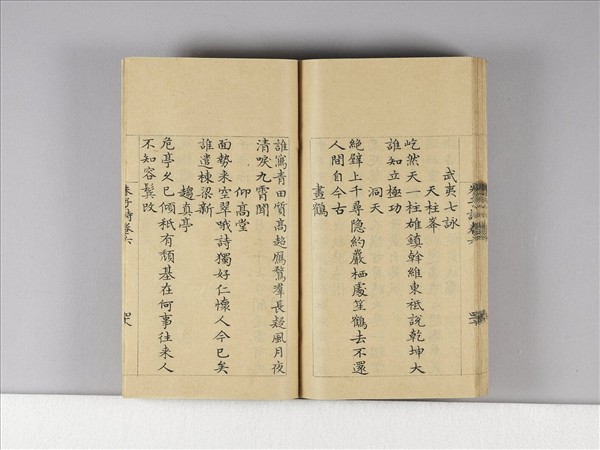 武夷七詠
天柱峯
屹然天一柱雄鎮幹維東祗說乾坤大
誰知立極功
洞天
絕壁上千尋隱約巖栖處笙鶴去不還
人間自今古
畫鶴
誰寫青田質高超鴈鶩羣長疑風月夜
清唳九霄聞
仰高堂
面勢來空翠哦詩獨好仁懷人今已矣
誰遣棟梁新
趨真亭
危亭久已傾秪有頹基在何事往來人
不知容鬢改
朱子詩卷六